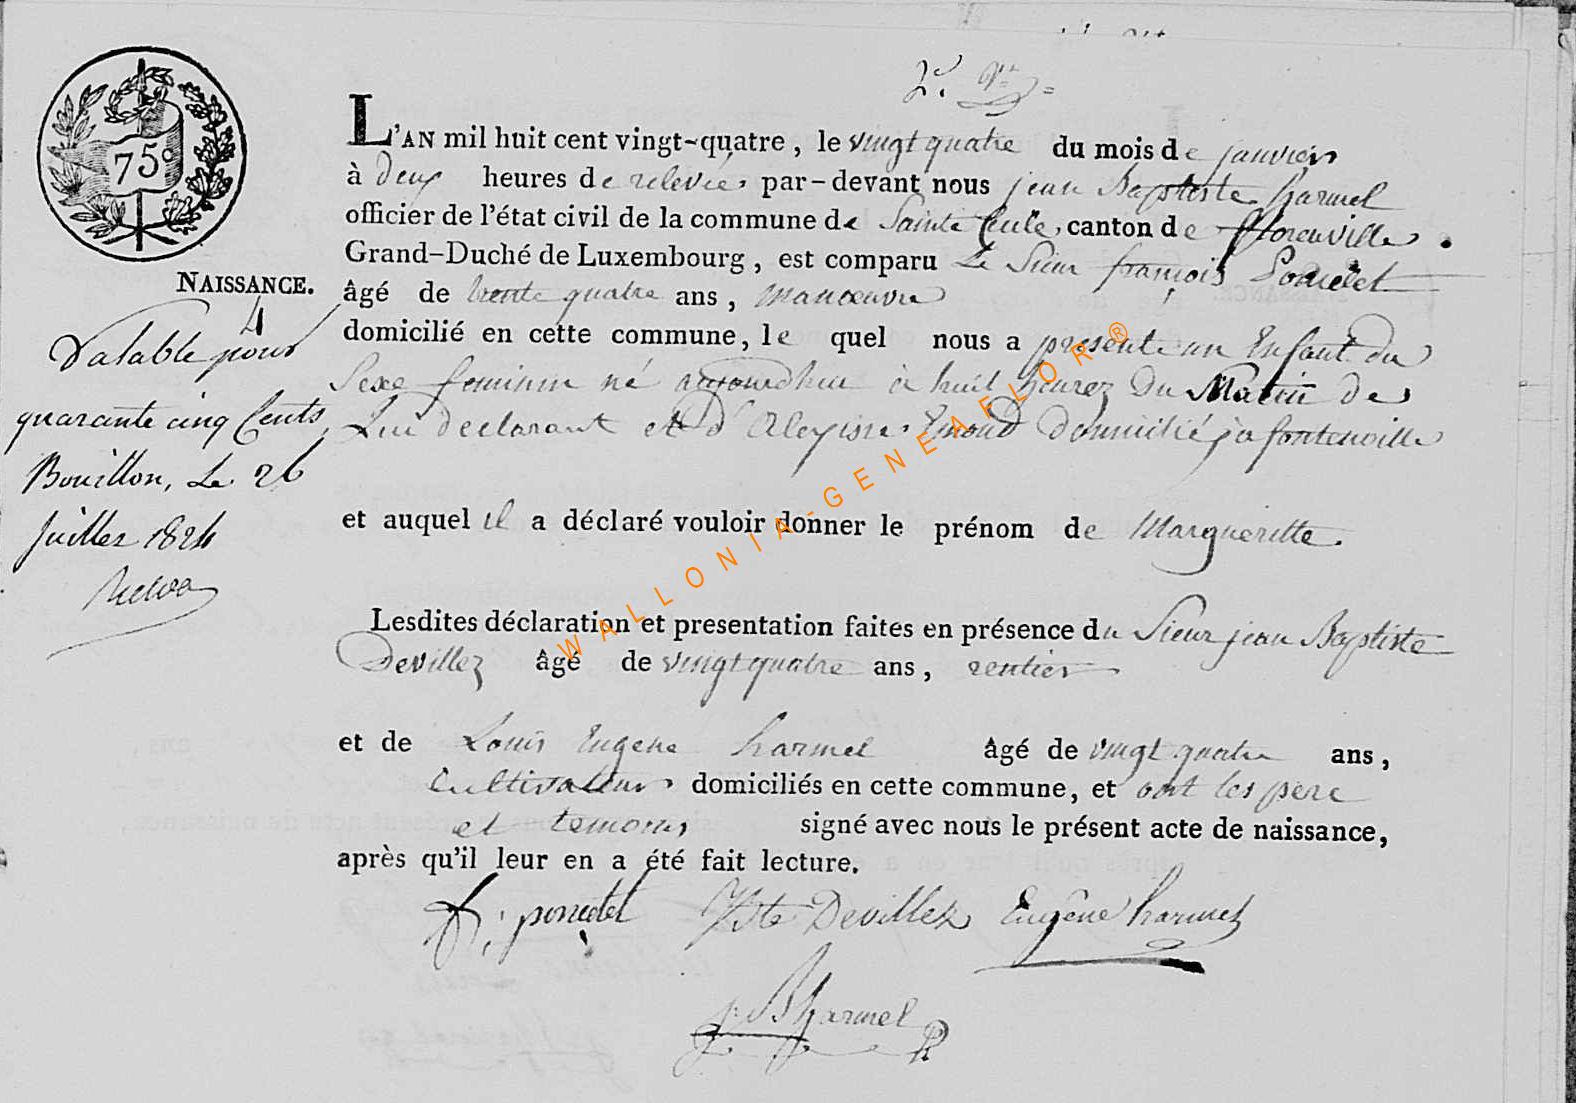 75c
NAISSANCE.
4
Valable pour
quarante cinq Cents,
Bouillon, Le 26
Juillet 1824
L'AN mil huit cent vingt-quatre, le vingt quatre du mois de janvier
à deux heures de relevée, par-devant nous jean Baptiste harmel
officier de l'état civil de la commune de Sainte Cecile, canton de florenville.
Grand-Duché de Luxembourg, est comparu Le Sieur françois Poncelet
âgé de trente quatre ans, manoeuvre
domicilié en cette commune, le quel nous a presenté un Enfant du
Sexe feminin né aujourdhui à huit heurez Du Matin de
Lui declarant et D' Emond Domiciliés à fontenoille
et auquel il a déclaré vouloir donner le prénom de Margueritte.
Lesdites déclaration et presentation faites en présence du Sieur jean Baptiste
Devillez âgé de vingt quatre ans, rentier
et de Louis Eugene harmel âgé de vingt quatre ans,
Cultivateur domiciliés en cette commune, et ont les pere
et temoins signé avec nous le présent acte de naissance,
après qu'il leur en a été fait lecture.
Devillez Eugêne harmel
j. B harmel
WALLONIA-GENEAFLOR®